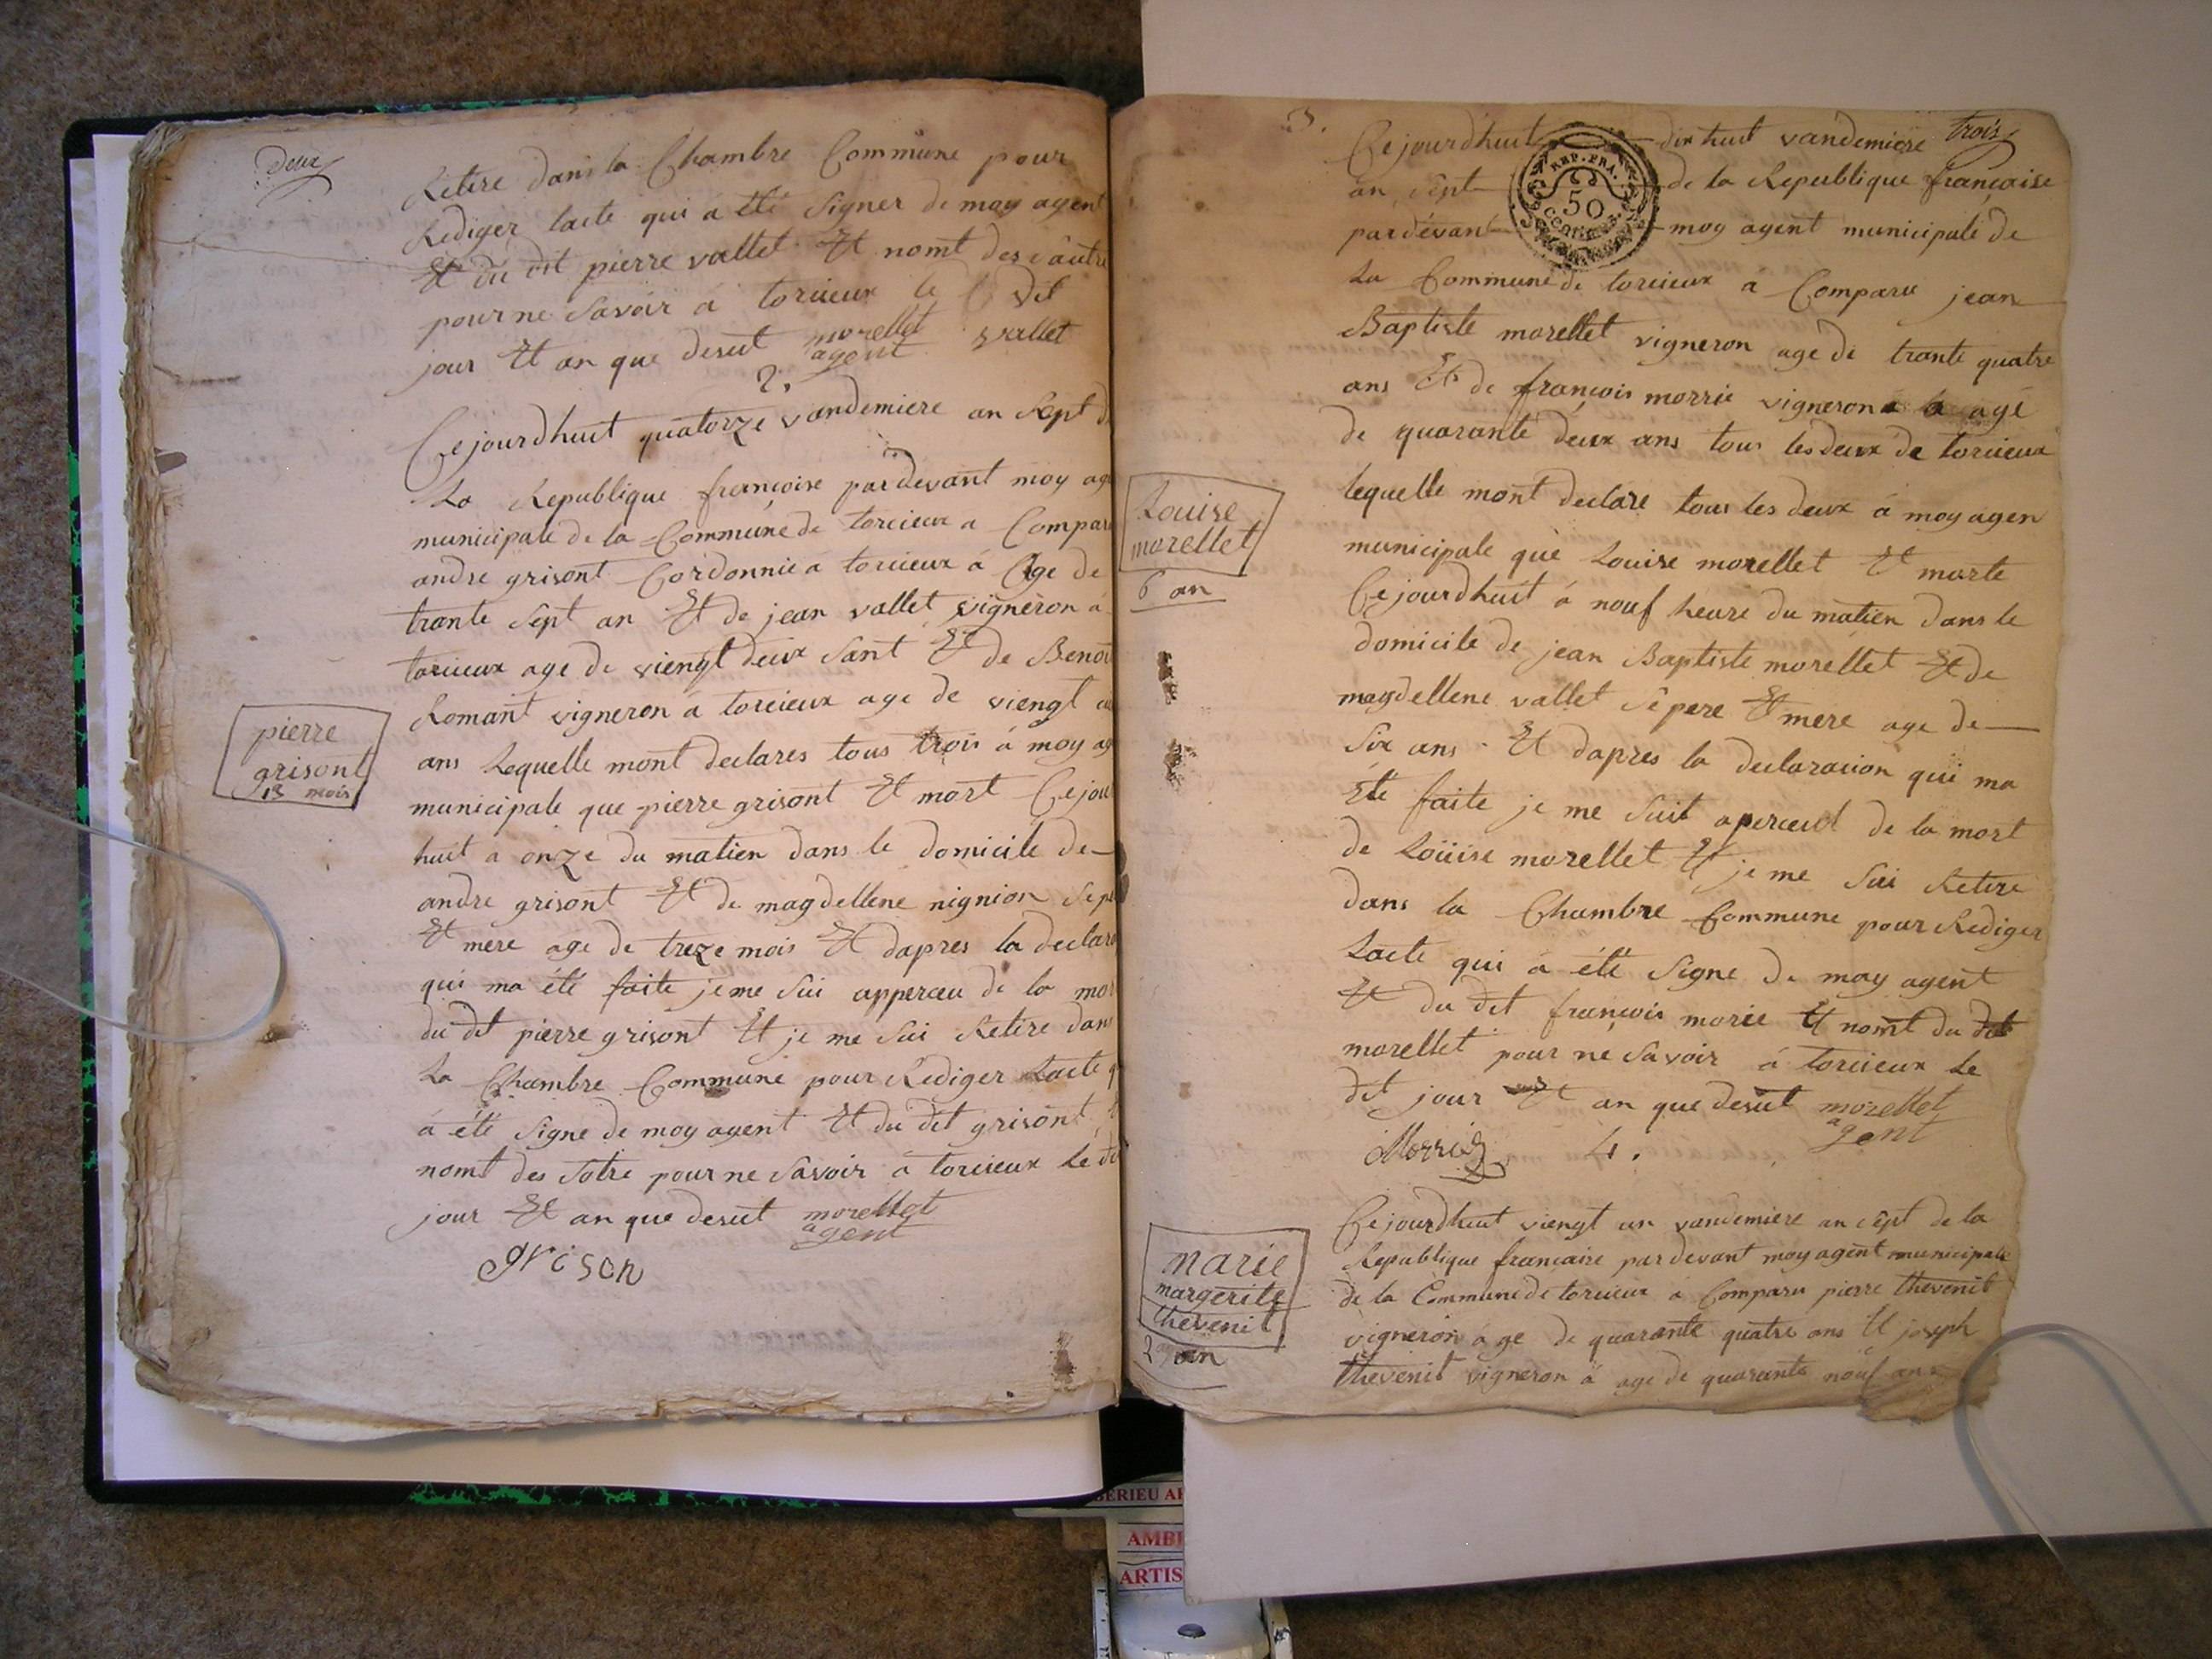 Deux
Retire dans la Chambre Commune pour
Rediger lacte qui a été Signer de moy agent
Et du dit pierre vallet Et nomt des sautre
pour ne Savoir a torcieux le dit
jour Et an que desut morellet vallet
agent
2.
Cejourdhuit quatorze vandemiere an Sept d
La Republique françoise pardevant moy age
municipale de la Commune de torcieux a Compar
andre grisont Cordonnié a torcieux a Age de
trante Sept an Et de jean vallet vigneron a
torcieux age de viengt deux Sant Et de Benoi
Romant vigneron a torcieux age de viengt
ans Lequelle mont declares tous trois a moy ag
municipale que pierre grisont Et mort Cejou
huit a onze du matien dans le domicile de
andre grisont Et de magdellene nignion Sepe
Et mere age de treze mois Et dapres la declara
qui ma été faite je me Sui apperceu de la mor
du dit pierre grisont Et je me Sui Retire dans
La Chambre Commune pour Rediger Lacte q
a été Signe de moy agent Et du dit grisont
nomt des Sotre pour ne Savoir a torcieux Le di
jour Et an que desut morellet
agent
grison
pierre
grisont
13 mois
3.
trois
Cejourdhuit dix huit vandemiere
an Sept de la Republique française
pardevant moy agent municipale de
REP. FRA.
50
CENTIMES
La Commune de torcieux a Comparu jean
Baptiste morellet vigneron age de trante quatre
ans Et de françois morrie vigneron a agé
de quarante deux ans tous les deux de torcieux
lequelle mont declare tous les deux a moy agen
municipale que Louise morellet Et morte
Cejourdhuit a nouf heure du matien dans le
domicile de jean Baptiste morellet Et de
magdellene vallet Sepere Et mere age de
Six ans Et dapres la declaracion qui ma
Eté faite je me Suit aperceut de la mort
de Louise morellet Et je me Sui Retire
dans la Chambre Commune pour Rediger
Lacte qui a été Signe de moy agent
Et du dit françois morie Et nomt du dit
morellet pour ne Savoir a torcieux Le
dit jour Et an que desut morellet
agent
Morrié
4.
Cejourdhuit viengt un vandemiere an sept de la
Republique francaise pardevant moy agent municipale
de la Commune de torcieux a Comparu pierre thevenit
vigneron age de quarante quatre ans Et joseph
thevenit vigneron a age de quarante nouf ans
Louise
morellet
6 an
marie
margerite
thevenit
2 an
BERIEU
AMB
ARTIS